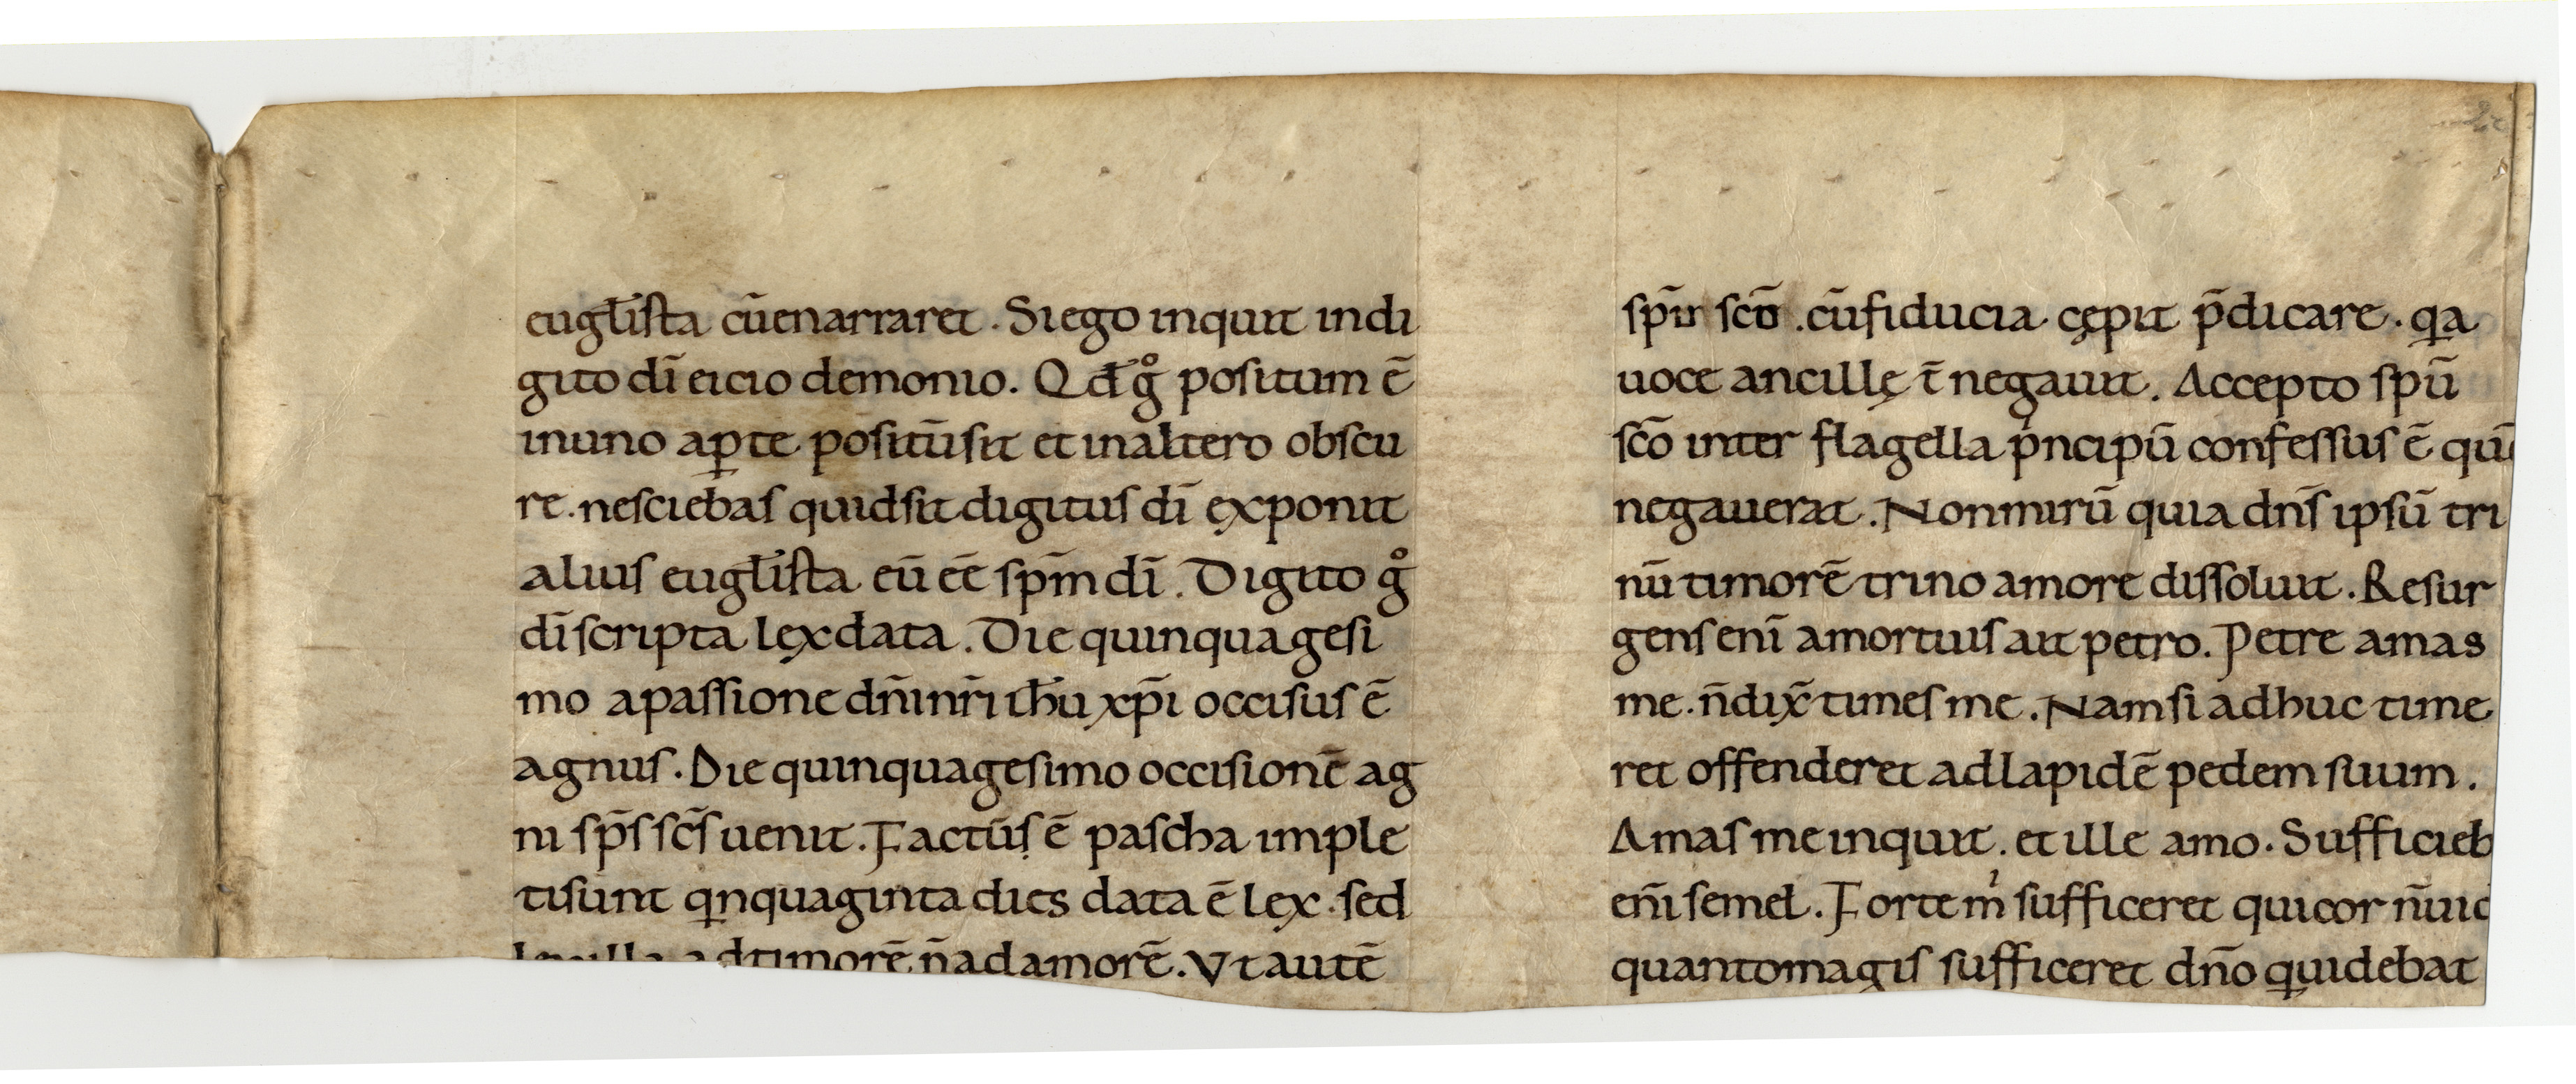 euglista cu̅enarraret. Siego inquit indi
gito di̅ eicio demonio. Qd̅ gͦ positum e̅
inuno aꝑte positu̅sit et inaltero obscu
re. nesciebas quidsit digitus di̅ exponit
aliuis euglista eu̅ ee̅ spm̅ di̅. Digito gͦ
di̅ scripta lexdata. Die quinquagesi
mo apassione dn̅inr̅i ih̅u xp̅i occisus e̅
agnus. Die quinquagesimo occisione̅ ag
ni sp̅s sc̅s uenit. Factu̅ṣ e̅ pascha imple
tisunt qinquaginta dies data e̅ lex. sed
adtimore̅ n̅adamore̅. Vt aute̅
sp̅ir sco̅. cu̅fiducia cępit p̅dicare. qa
uoce ancillę t̅ negauit. Accepto spu̅
sco̅ inter flagella pⁱncipu̅ confessus e̅ que̅
negauerat. Nonmiru̅ quia dn̅s ipsu̅ tri
nu̅ timore̅ trino amore dissoluit. Resur
gens eni̅ amortuis ait petro. Petre amas
me. n̅dix̅ times me. Namsi adhuc time
ret offenderet adlapide̅ pedem suum.
Amas me inquit. et ille amo. Sufficieb
en̅i semel. Forte mⁱ sufficeret quicor n̅uid
quantomagis sufficeret dn̅o quidebat